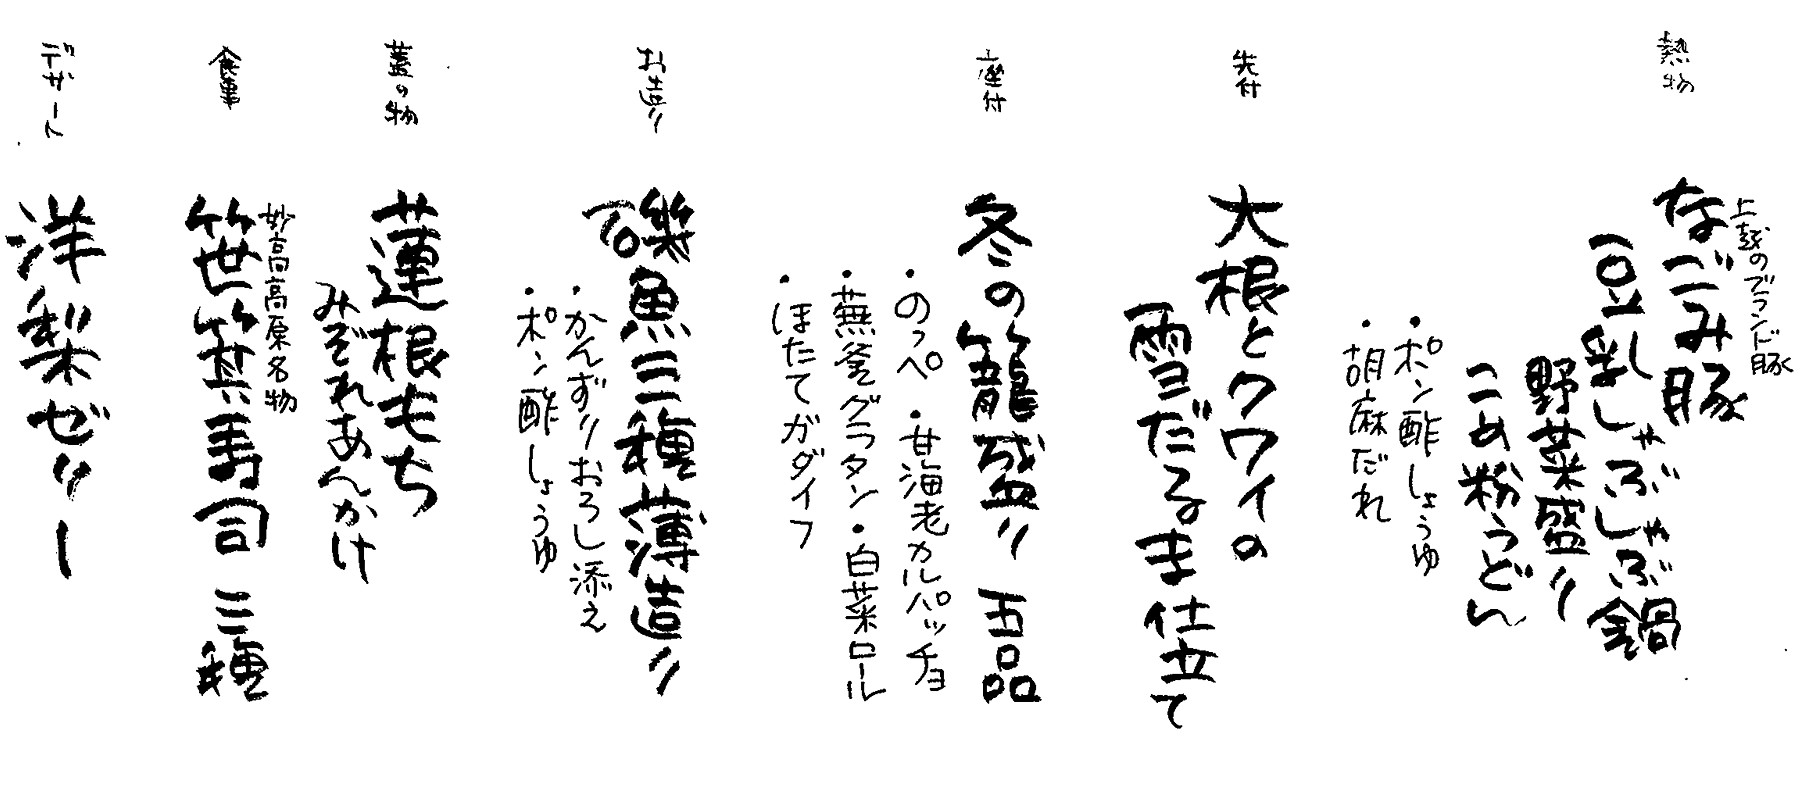 熱物
上越のブランド豚
なごみ豚
豆乳しゃぶしゃぶ鍋
野菜盛り
こめ粉うどん
・ポン酢しょうゆ
・胡麻だれ
先付
大根とクワイの
雪だるま仕立て
座付
冬の籠盛り 五品
・のっぺ ・甘海老カルパッチョ
・蕪釜グラタン ・白菜ロール
・ほたてカダイフ
お造り
磯魚三種薄造り
・かんずりおろし添え
・ポン酢しょうゆ
蓋の物
蓮根もち
みぞれあんかけ
食事
妙高高原名物
笹箕寿司 三種
デザート
洋梨ゼリー